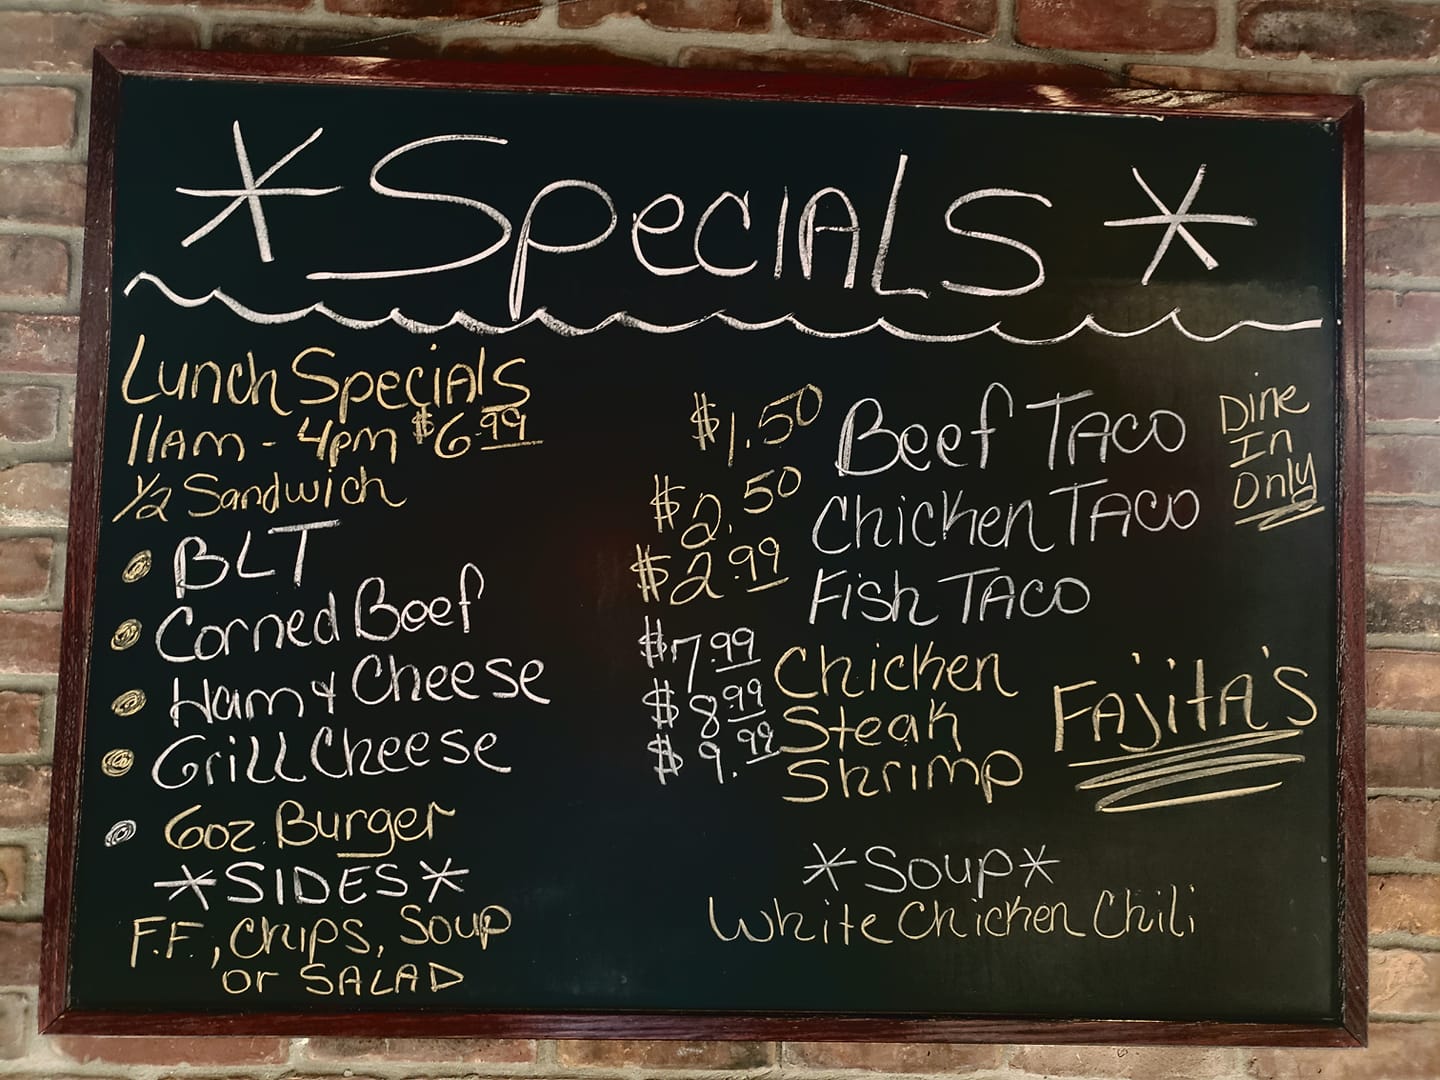 *Specials*
Lunch Specials
11am - 4pm $6.99
1/2 Sandwich
BLT
Corned Beef
Ham & Cheese
Grill Cheese
6oz. Burger
*SIDES*
F.F., Chips, Soup
or SALAD
$1.50 Beef Taco
$2.50 Chicken Taco
$2.99 Fish Taco
Dine
In
Only
$7.99 Chicken
$8.99 Steak
$9.99 Shrimp
Fajita's
*Soup*
White Chicken Chili